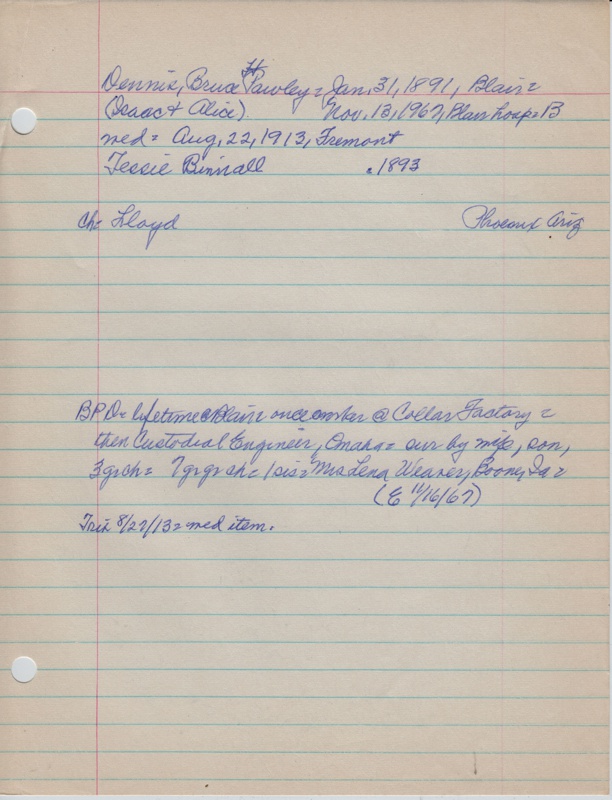 Dennis, Bruce Pawley = Jan, 31, 1891, Blair =
(Isaac & Alice). Nov, 13, 1967, Blair hosp = B
wed = Aug, 22, 1913, Fremont
Tessie Binnall . 1893
ch = Lloyd Phoenix Ariz
BPD = lifetime Blair once owner @ Collar Factory =
then Custodial Engineer, Omaha = sur by wife, son,
3 grch = 7 grgrch = 1 sis = Mrs Lena Weaver, Boone, Ia =
(E 11/16/67)
Trib 8/27/13 = wed item.